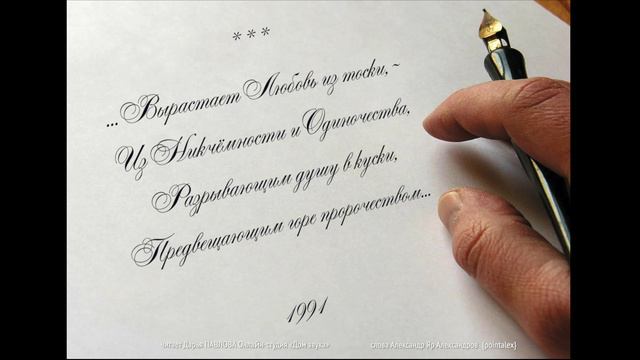 * * *
...Вырастает Любовь из тоски,~
Из Никчёмности и Одиночества,
Разрывающим душу в куски,
Предвещающим горе пророчеством...
1991
читает Дарья ПАВЛОВА Онлайн-студия «Дом звука» слова Александр Яр Александров (pointalex)